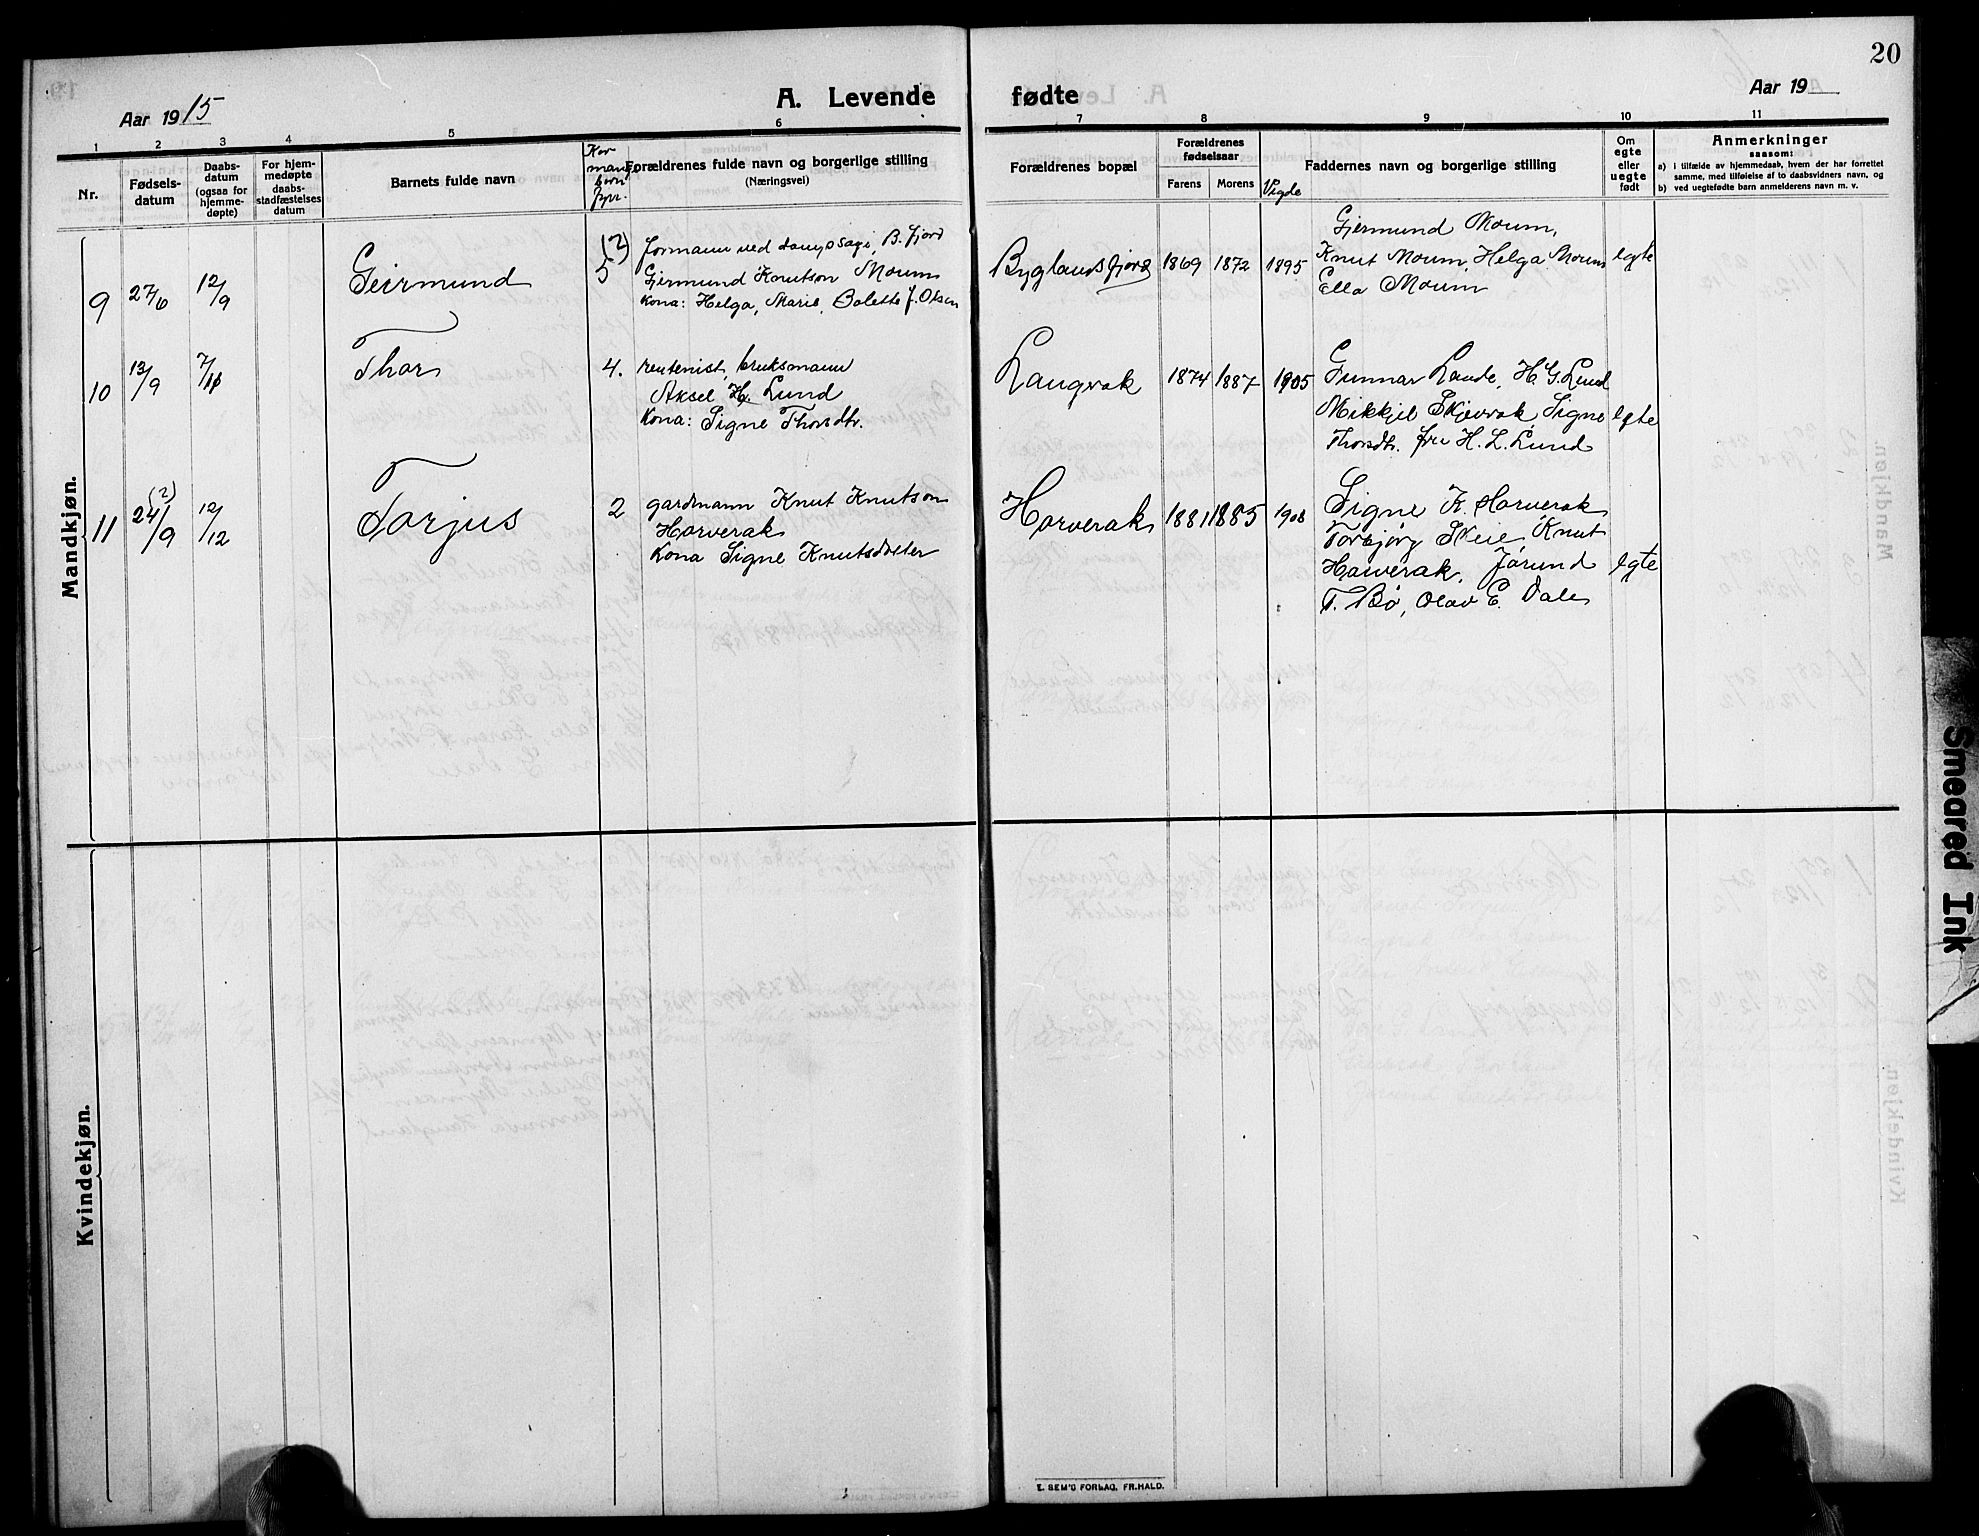 20
A. Levende fødte
Aar 1915
Aar 19
1 2 3 4 5 6 7 8 9 10 11
Nr.
Fødsels-
datum
Daabs-
datum
(ogsaa for
hjemme-
døpte)
For hjem-
medøpte
daabs-
stadfæstelses
datum
Barnets fulde navn
Kor
mange
born
fyrr.
Forældrenes fulde navn og borgerlige stilling
(Næringsvei)
Forældrenes bopæl
Forældrenes
fødselsaar
Farens Morens
Vigde
Faddernes navn og borgerlige stilling
Om
egte
eller
uegte
født
Anmerkninger
saasom:
a) i tilfælde av hjemmedaab, hvem der har forrettet
samme, med tilføielse af to daabsvidners navn, og
b) ved uegtefødte barn anmelderens navn m. v.
Mandkjøn.
9 27/6 12/9 Geirmund (2) 5
formann ved dampsagi, B. fjord
Gjermund Knutson Moum
kona: Helga, Marie, Bolette J. Olsen
Byglandsfjord 1869 1872 1895
Gjermund Moum,
Knut Moum, Helga Moum
Ella Moum
egte
10 13/9 7/11 Thor 4.
rentenist, bruksmann
Aksel H. Lund
Kona: Signe Thorsdtr.
Langvak 1874 1887 1905
Gunnar Lande, H. G. Lund
Mikkjel Skjevrak Signe
Thorsdt. fru H. L. Lund
egte
11 (2) 24/9 12/12 Torjus 2
gardmann Knut Knutson
Horverak
Kona Signe Knutsdotter
Horverak 1881 1885 1908
Signe K. Horverak
Torbjørg Skeie, Knut
Horverak, Jørund
T. Bø, Olav E. Dale
egte
Kvindekjøn.
E. SEM'S FORLAG, FR.HALD.
Smeared Ink